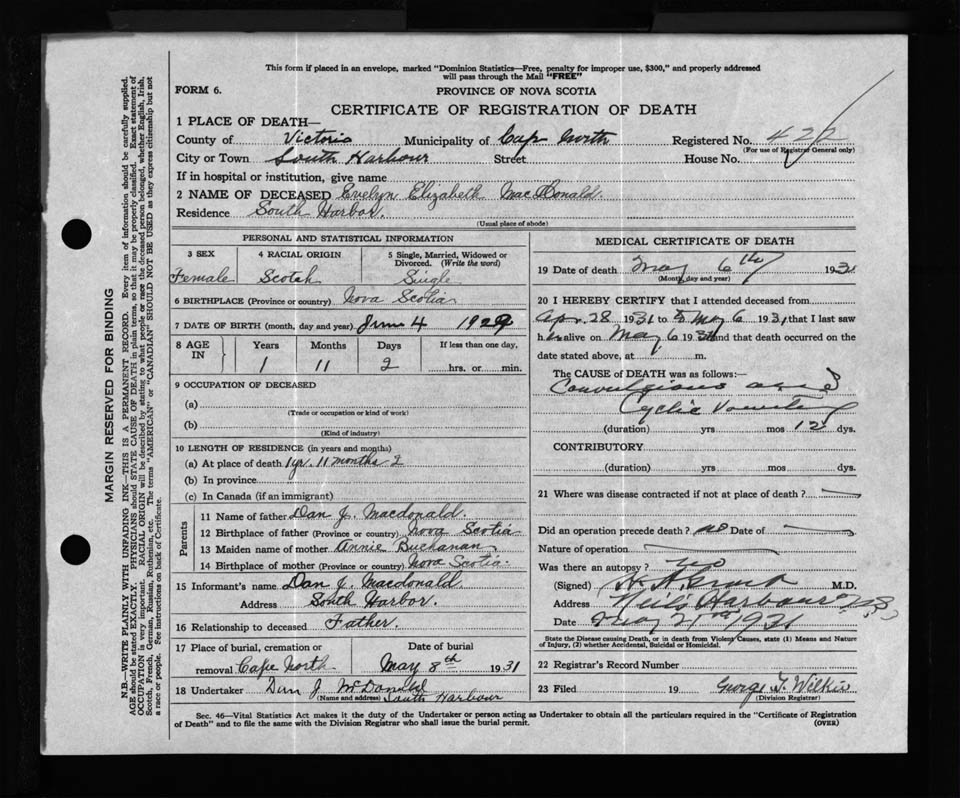 This form if placed in an envelope, marked "Dominion Statistics—Free, penalty for improper use, $300," and properly addressed
will pass through the Mail "FREE"
FORM 6.
PROVINCE OF NOVA SCOTIA
CERTIFICATE OF REGISTRATION OF DEATH
1 PLACE OF DEATH—
County of Victoria Municipality of Cap North Registered No.
(For use of Registrar General only)
City or Town South Harbour Street House No.
If in hospital or institution, give name
2 NAME OF DECEASED Evelyn Elizabeth MacDonald
Residence South Harbor.
(Usual place of abode)
PERSONAL AND STATISTICAL INFORMATION
3 SEX 4 RACIAL ORIGIN 5 Single, Married, Widowed or Divorced. (Write the word)
Female Scotch Single
6 BIRTHPLACE (Province or country) Nova Scotia
7 DATE OF BIRTH (month, day and year) June 4 1929
8 AGE IN Years Months Days If less than one day,
1 11 2 hrs. or min.
9 OCCUPATION OF DECEASED
(a)
(Trade or occupation or kind of work)
(b)
(Kind of industry)
10 LENGTH OF RESIDENCE (in years and months)
(a) At place of death 1 yr. 11 months 2
(b) In province
(c) In Canada (if an immigrant)
Parents
11 Name of father Dan J. Macdonald.
12 Birthplace of father (Province or country) Nova Scotia
13 Maiden name of mother Annie Buchanan
14 Birthplace of mother (Province or country) Nova Scotia.
15 Informant's name Dan J. Macdonald.
Address South Harbor.
16 Relationship to deceased Father.
17 Place of burial, cremation or Date of burial
removal Cape North May 8th 1931
18 Undertaker Dan J McDonald
(Name and address) South Harbour
MEDICAL CERTIFICATE OF DEATH
19 Date of death May 6th 1931
(Month, day and year)
20 I HEREBY CERTIFY that I attended deceased from
Apr. 28 1931 to May 6 1931 that I last saw
h er alive on May 6 1931 and that death occurred on the
date stated above, at m.
The CAUSE OF DEATH was as follows:—
Convulsions and
Cyclic Vomiting
(duration) yrs mos 12 dys.
CONTRIBUTORY
(duration) yrs mos dys.
21 Where was disease contracted if not at place of death?
Did an operation precede death? no Date of
Nature of operation
Was there an autopsy? no
(Signed) M.D.
Address Neils Harbour NS
Date May 21st 1931
State the Disease causing Death, or in death from Violent Causes, state (1) Means and Nature
of Injury, (2) whether Accidental, Suicidal or Homicidal.
22 Registrar's Record Number
23 Filed 19 George T. Wilkie
(Division Registrar)
Sec. 46—Vital Statistics Act makes it the duty of the Undertaker or person acting as Undertaker to obtain all the particulars required in the "Certificate of Registration
of Death" and to file the same with the Division Registrar who shall issue the burial permit. (OVER)
MARGIN RESERVED FOR BINDING
N.B.—WRITE PLAINLY WITH UNFADING INK—THIS IS A PERMANENT RECORD. Every item of information should be carefully supplied.
AGE should be stated EXACTLY. PHYSICIANS should STATE CAUSE OF DEATH in plain terms, so that it may be properly classified. Exact statement of
OCCUPATION is very important. RACIAL ORIGIN will be described by stating to what people or race the deceased person belonged, whether English, Irish,
Scotch, French, German, Russian, Ruthenian, etc. The terms "AMERICAN" or "CANADIAN" SHOULD NOT BE USED as they express citizenship but not
a race or people. See instructions on back of Certificate.